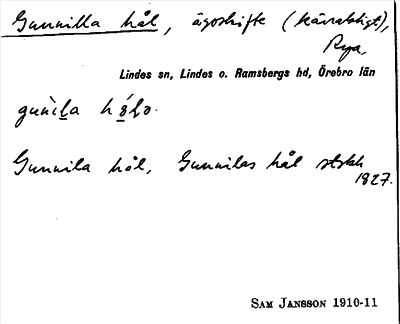 Gunnilla hål, ägoskifte (kärraktigt),
Rya,
Lindes sn, Lindes o. Ramsbergs hd, Örebro län
Gunnila hål, Gunnilas hål stskh
1827.
SAM JANSSON 1910-11